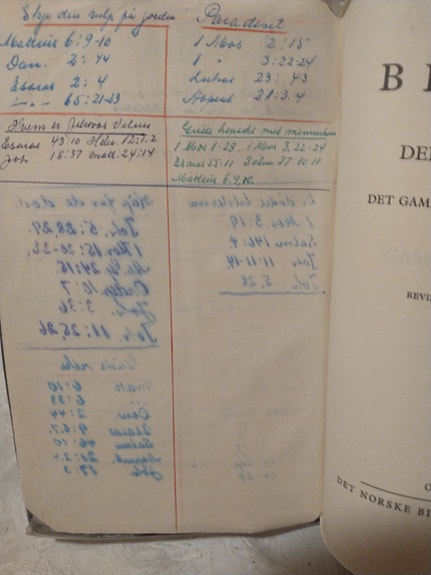 Skje den vilje på jorden
Matteus 6:9-10
Dan. 2:44
Esaias 2:4
65:21-23
Paradiset
1 Mos 2:15
1 " 3:22-24
Lukas 23:43
21:3.4
Hvem er Jehovas
Esaias 43:10 12:1.2
Joh 18:37 Matt. 24:14
Guds hensikt med menneskene
1 Mos 1-28, 1 Mos 3.22-24
Esaias 55:11 Salm 37-10.11
Matteus 6.9,10.
Håp for de døde
Joh. 5:28.29.
1 Kor 15:20-22.
24:15
3:36
Joh. 11:25,26
1 Mos. 3:19.
Salme 146:4
Joh. 11:11-14.
Joh. 5,28
Guds rike
Matt 6:10
6:33
Dan 2:44
Esaias 9:6.7
Salme 46:10
B
DE
DET GAM
REVI
O
DET NORSKE BI